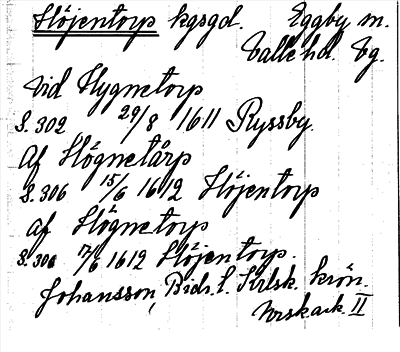 Höjentorp kgsgd. Eggby sn.
Valle hd. Vg.
Vid Hygnetorp
S. 302 29/8 1611 Ryssby.
Af Högnetårp
S. 306 15/6 1612 Höjentorp
Af Högnetorp
S. 306 17/6 1612 Höjentorp.
Johansson, Bidr. t. Krlsk. krön.
Norskark. II